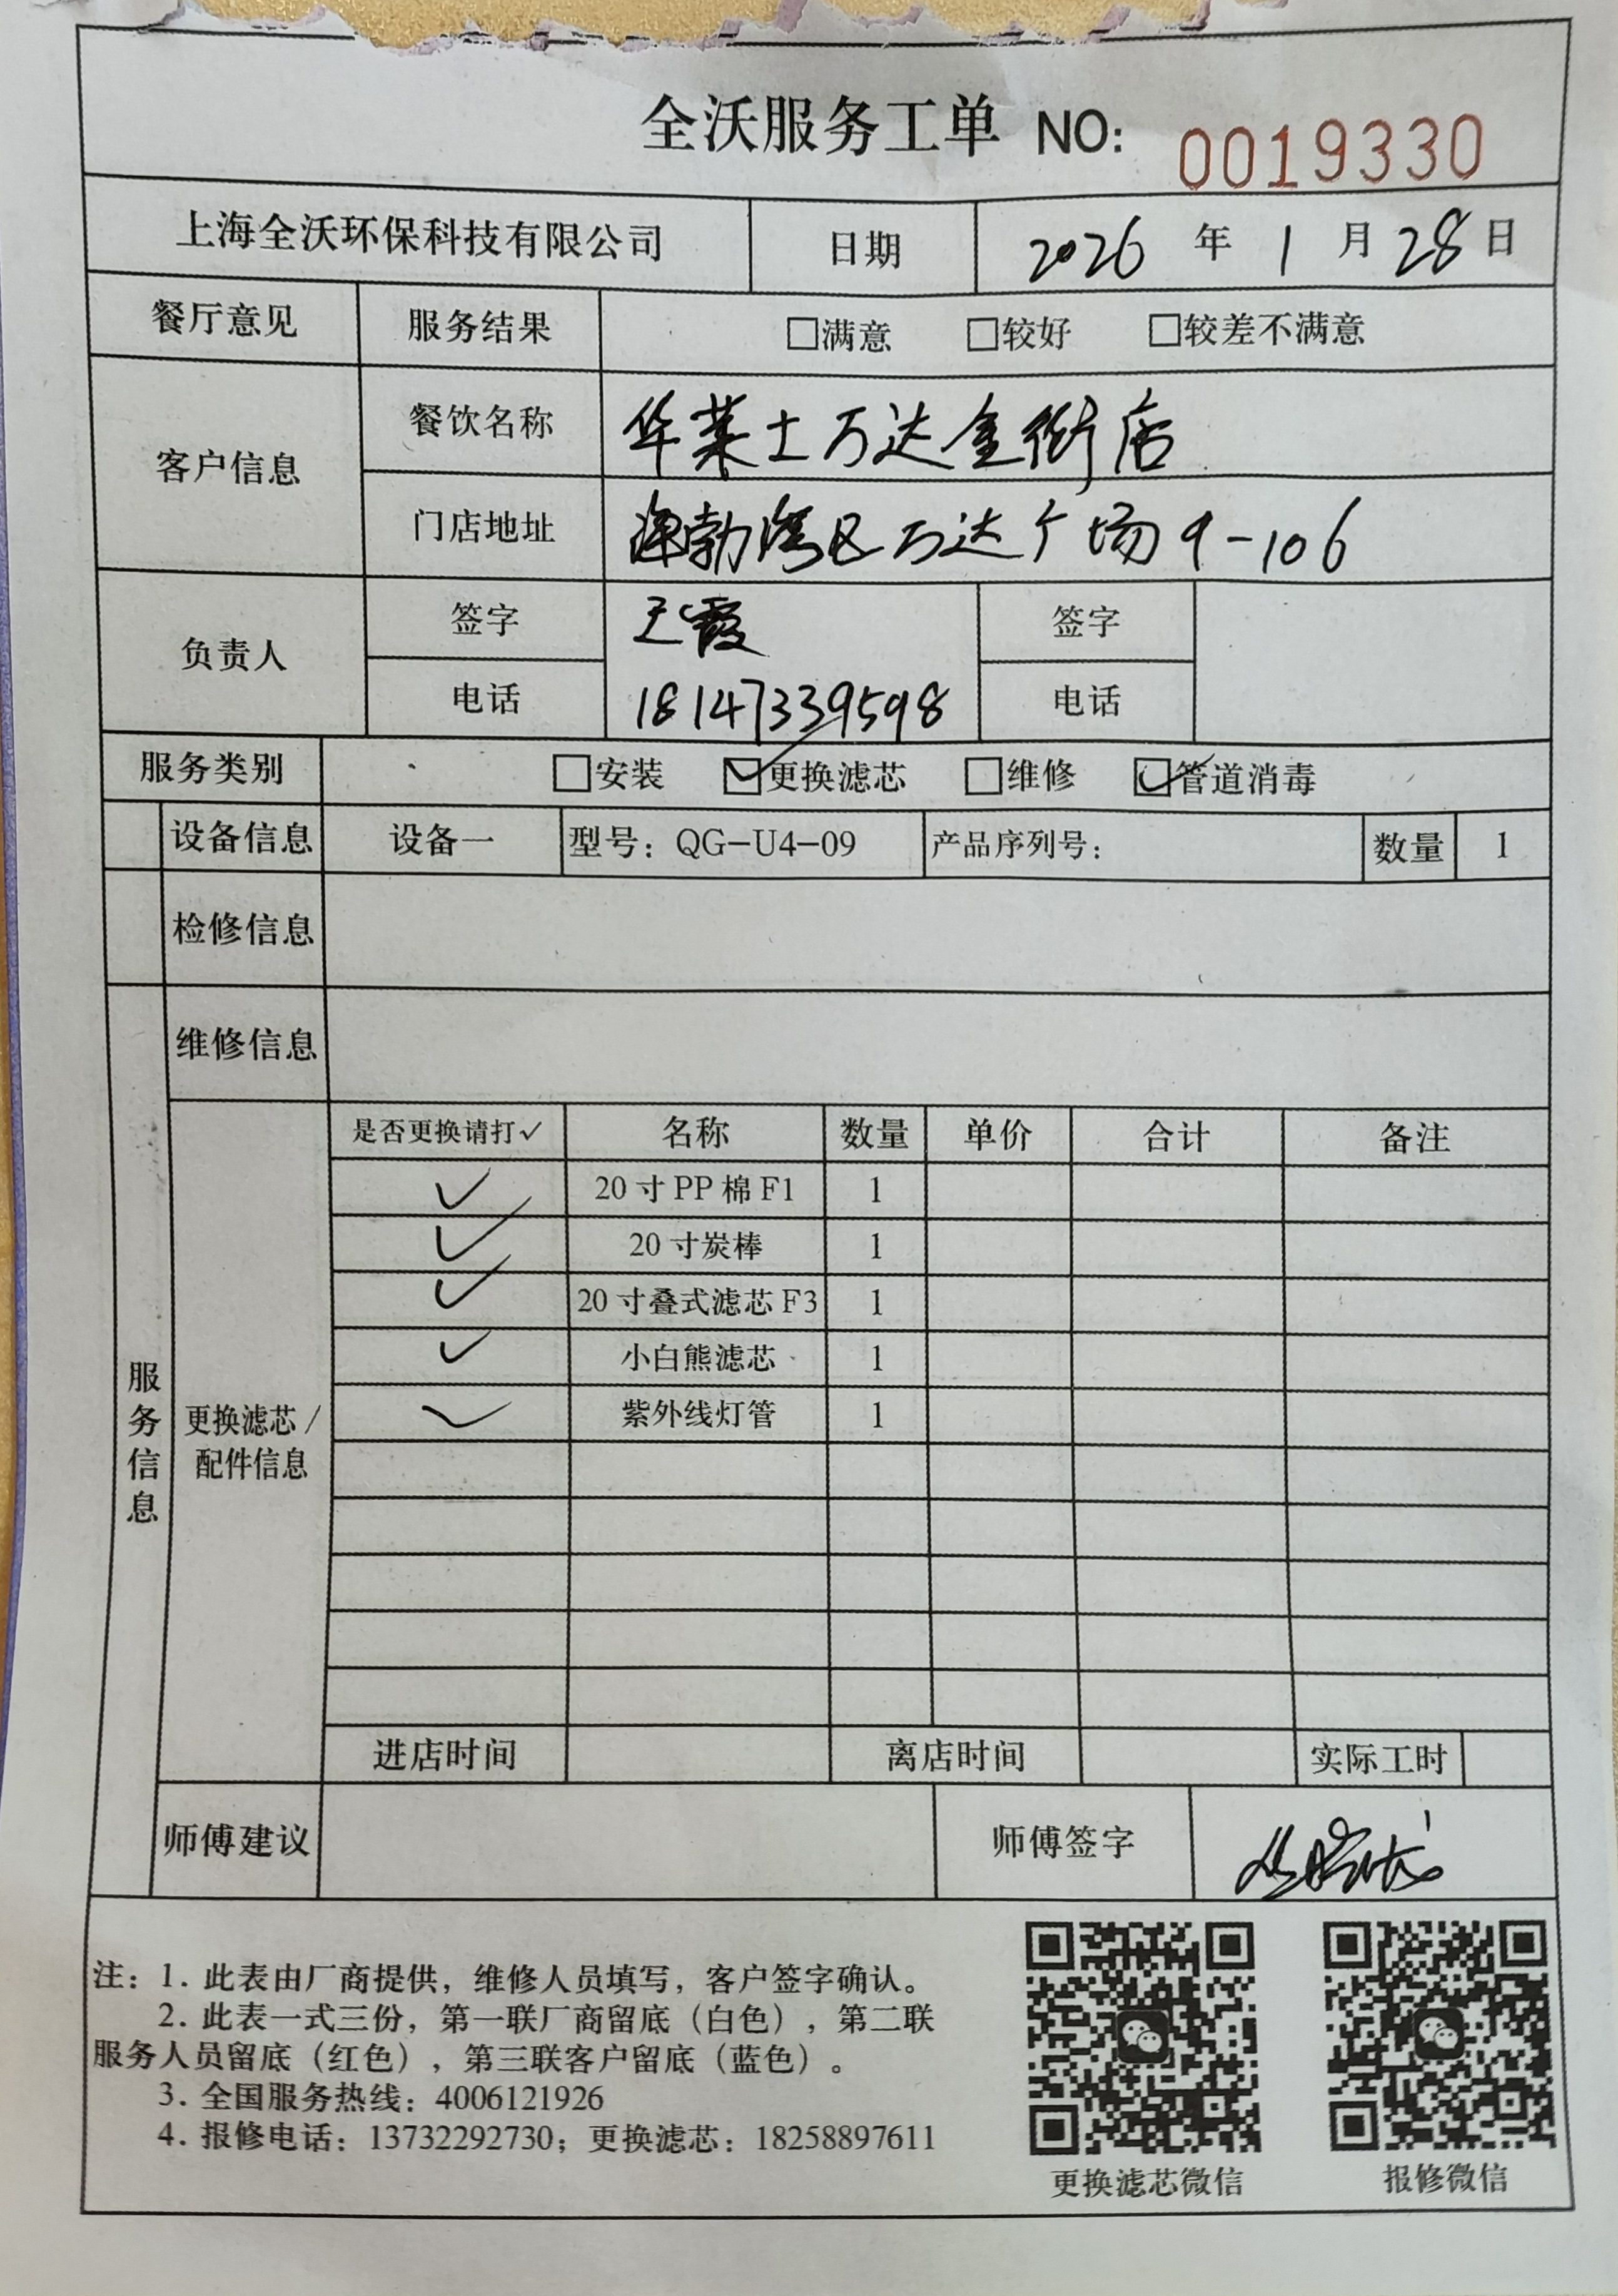 全沃服务工单 NO: 0019330
上海全沃环保科技有限公司 日期 2026 年 1 月 28 日
餐厅意见 服务结果 □满意 □较好 □较差不满意
客户信息 餐饮名称 华莱士万达金街店
门店地址 海勃湾区万达广场9-106
负责人 签字 王霞 签字
电话 18147339598 电话
服务类别 □安装 ☑更换滤芯 □维修 ☑管道消毒
设备信息 设备一 型号：QG-U4-09 产品序列号： 数量 1
检修信息
维修信息
服务信息
更换滤芯/配件信息
是否更换请打✓ 名称 数量 单价 合计 备注
✓ 20寸PP棉F1 1
✓ 20寸炭棒 1
✓ 20寸叠式滤芯F3 1
✓ 小白熊滤芯 1
✓ 紫外线灯管 1
进店时间 离店时间 实际工时
师傅建议 师傅签字
注：1. 此表由厂商提供，维修人员填写，客户签字确认。
2. 此表一式三份，第一联厂商留底（白色），第二联
服务人员留底（红色），第三联客户留底（蓝色）。
3. 全国服务热线：4006121926
4. 报修电话：13732292730；更换滤芯：18258897611
更换滤芯微信 报修微信